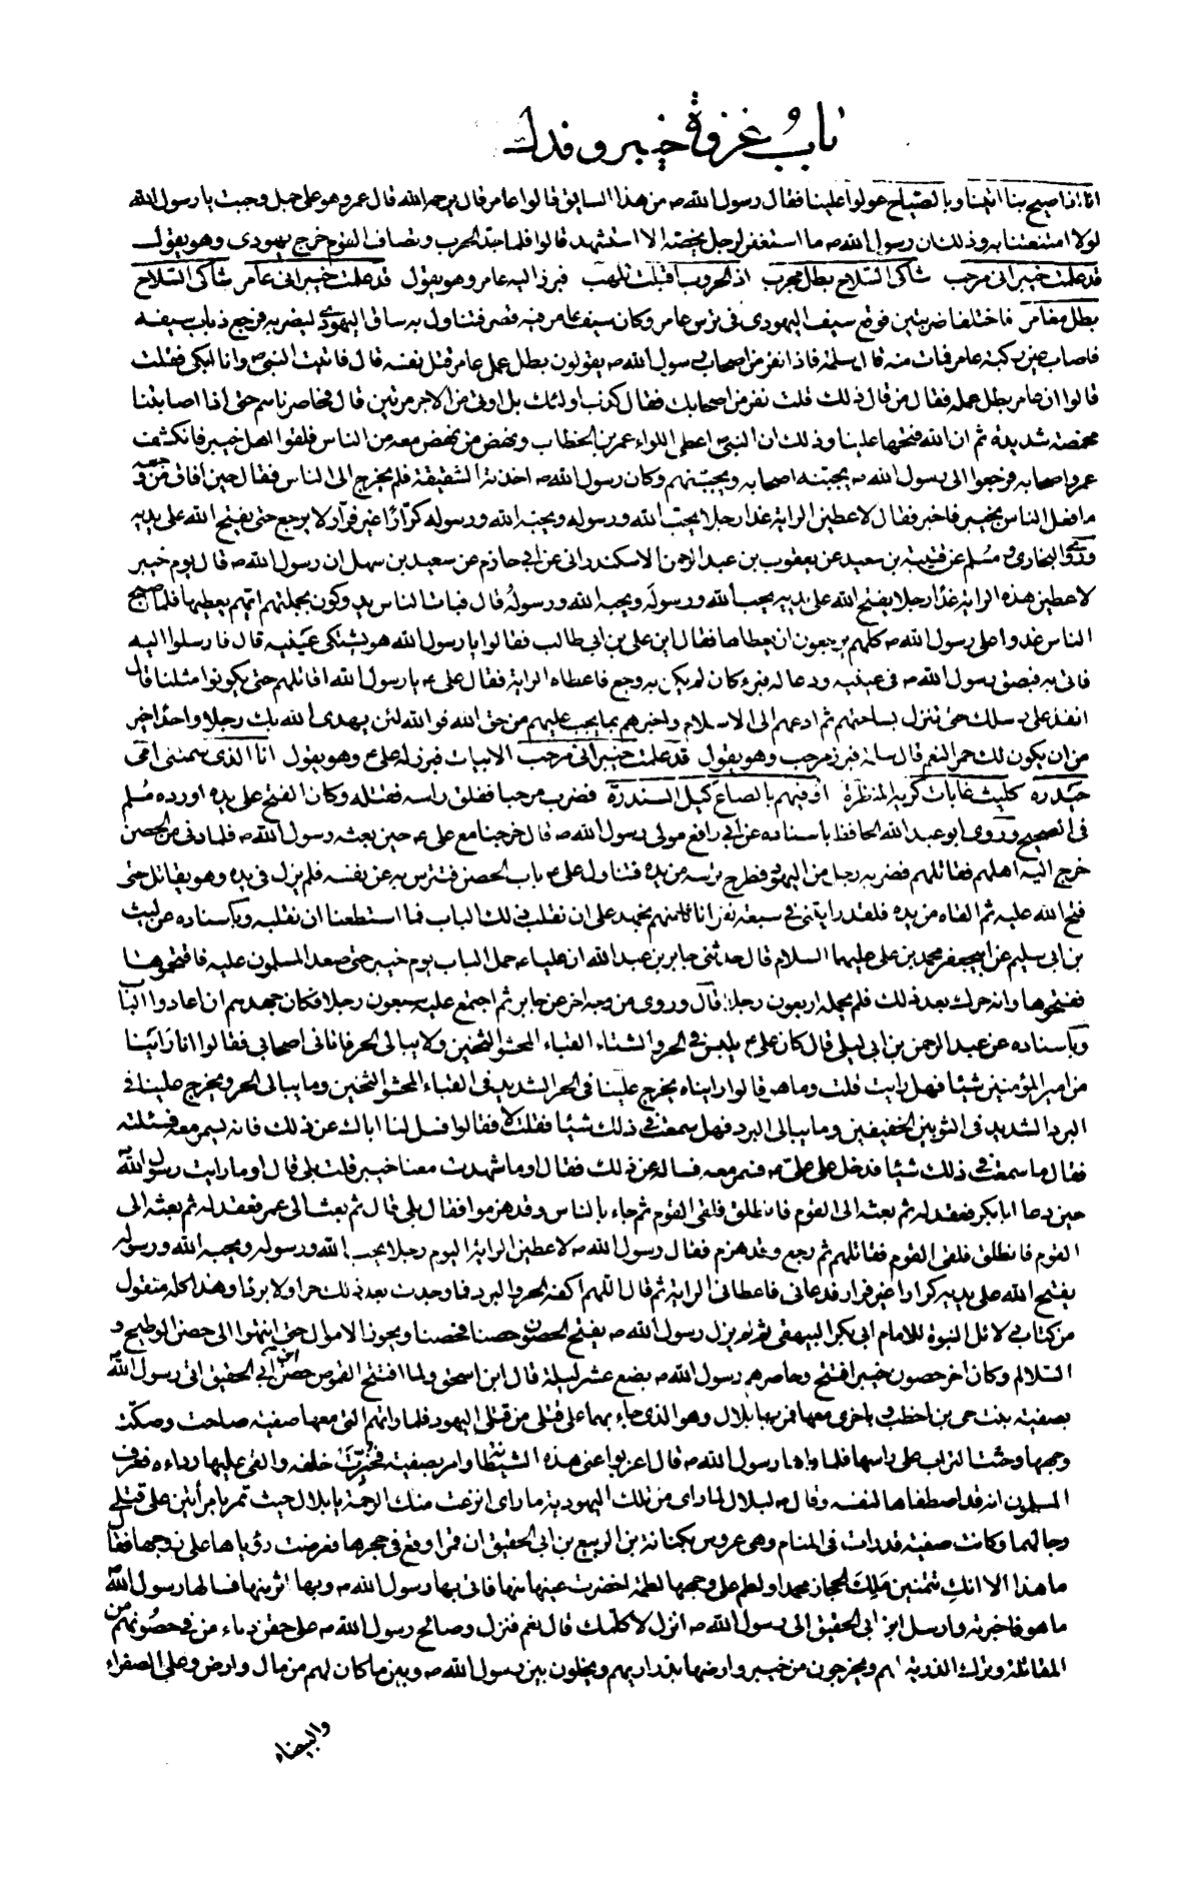 باب غزوة خيبر وفدك
انا اذا صيح بنا اتينا وبالصياح عولوا علينا فقال رسول الله ص من هذا السايق قالوا عامر قال يرحمه الله قال عمر وهو على جمل وجبت يا رسول الله
لولا امتعتنا به وذلك ان رسول الله ص ما استغفر لرجل يخصه الا استشهد قالوا فلما جد الحرب وتصاف القوم خرج يهودى وهو يقول
قد علمت خيبر انى مرحب شاكى السلاح بطل مجرب اذا الحروب اقبلت تلهب فبرز اليه عامر وهو يقول قد علمت خيبر انى عامر شاكى السلاح
بطل مغامر فاختلفا ضربتين فوقع سيف اليهودى فى ترس عامر وكان سيف عامر فيه قصر فتناول به ساق اليهودى ليضربه فرجع ذباب سيفه
فاصاب عين ركبة عامر فمات منه قال سلمة فاذا نفر من اصحاب رسول الله ص يقولون بطل عمل عامر قتل نفسه قال فاتيت النبى ص وانا ابكى فقلت
قالوا ان عامر بطل عمله فقال من قال ذلك قلت نفر من اصحابك فقال كذب اولئك بل اوتى من الاجر مرتين قال فحاصرناهم حتى اذا اصابتنا
مخمصة شديدة ثم ان الله فتحها علينا وذلك ان النبى ص اعطى اللواء عمر بن الخطاب ونهض من نهض معه من الناس فلقوا اهل خيبر فانكشف
عمر واصحابه فرجعوا الى رسول الله ص يجبنه اصحابه ويجبنهم وكان رسول الله ص اخذته الشقيقة فلم يخرج الى الناس فقال حين افاق من وجعه
ما فعل الناس بخيبر فاخبر فقال لاعطين الراية غدا رجلا يحب الله ورسوله ويحبه الله ورسوله كرارًا غير فرار لا يرجع حتى يفتح الله على يديه
وروى البخارى ومسلم عن قتيبة بن سعيد عن يعقوب بن عبد الرحمن الاسكندرانى عن ابى حازم عن سعيد بن سهل ان رسول الله ص قال يوم خيبر
لاعطين هذه الراية غدًا رجلا يفتح الله على يديه يحب الله ورسوله ويحبه الله ورسوله قال فبات الناس يدوكون بجملتهم ايهم يعطيها فلما اصبح
الناس غدوا على رسول الله ص كلهم يرجون ان يعطاها فقال اين على بن ابى طالب فقالوا يا رسول الله هو يشتكى عينيه قال فارسلوا اليه
فاتى به فبصق رسول الله ص فى عينيه ودعا له فبرء كان لم يكن به وجع فاعطاه الراية فقال على ع يا رسول الله اقاتلهم حتى يكونوا مثلنا قال
انفذ على رسلك حتى تنزل بساحتهم ثم ادعهم الى الاسلام واخبرهم بما يجب عليهم من حق الله فوالله لئن يهدى الله بك رجلا واحدًا خير
من ان يكون لك حمر النعم قال سلمة فبرز مرحب وهو يقول قد علمت خيبر انى مرحب الابيات فبرز له على ع وهو يقول انا الذى سمتنى امى
حيدره كليث غابات كريه المنظرة اوفيهم بالصاع كيل السندرة فضرب مرحبا ففلق راسه فقتله وكان الفتح على يده اورده مسلم
فى الصحيح وروى ابو عبد الله الحافظ باسناده عن ابى رافع مولى رسول الله ص قال خرجنا مع على ع حين بعثه رسول الله ص فلما دنى من الحصن
خرج اليه اهلهم فقاتلهم فضربه رجل من اليهود فطرح ترسه من يده فتناول على ع باب الحصن فتترس به عن نفسه فلم يزل فى يده وهو يقاتل حتى
فتح الله عليه ثم القاه من يده فلقد رايتنى فى سبعة نفر انا ثامنهم نجهد على ان نقلب ذلك الباب فما استطعنا ان نقلبه وباسناده عن ليث
بن ابى سليم عن ابيجعفر محمد بن على عليهما السلام قال حدثنى جابر بن عبد الله ان عليا ع حمل الباب يوم خيبر حتى صعد المسلمون عليه فاقتحموها
ففتحوها وانه حرك بعد ذلك فلم يحمله اربعون رجلا قال وروى من وجه اخر عن جابر ثم اجتمع عليه سبعون رجلا فكان جهدهم ان اعادوا الباب
وباسناده عن عبد الرحمن بن ابى ليلى قال كان على ع يلبس فى الحر والشتاء القباء المحشو الثخين ولا يبالى الحر فاتانى اصحابى فقالوا انا راينا
من امير المؤمنين شيئا فهل رايت قلت وما هو قالوا رايناه يخرج علينا فى الحر الشديد فى القباء المحشو الثخين وما يبالى الحر ويخرج علينا فى
البرد الشديد فى الثوبين الخفيفين وما يبالى البرد فهل سمعت فى ذلك شيئا فقلت لا فقالوا فسل لنا اباك عن ذلك فانه يسمر معه فسئلته
فقال ما سمعت فى ذلك شيئا فدخل على على ع فسمر معه فساله عن ذلك فقال اوما شهدت معنا خيبر قلت بلى قال اوما رايت رسول الله
حين دعا ابا بكر فعقد له ثم بعثه الى القوم فانطلق فلقى القوم ثم جاء بالناس وقد هزموا فقال بلى قال ثم بعث الى عمر فعقد له ثم بعثه الى
القوم فانطلق فلقى القوم فقاتلهم ثم رجع وقد هزم فقال رسول الله ص لاعطين الراية اليوم رجلا يحب الله ورسوله ويحبه الله ورسوله
يفتح الله على يديه كرارا غير فرار فدعانى فاعطانى الراية ثم قال اللهم اكفه الحر والبرد فما وجدت بعد ذلك حرا ولا بردا وهذا كله منقول
من كتاب دلائل النبوة للامام ابى بكر البيهقى ثم لم يزل رسول الله ص يفتح الحصون حصنا فحصنا ويحوز الاموال حتى انتهوا الى حصن الوطيح و
السلالم وكان اخر حصون خيبر افتتح وحاصرهم رسول الله ص بضع عشر ليلة قال ابن اسحق ولما افتتح القموص حصن ابن ابى الحقيق اتى رسول الله
بصفية بنت حى بن اخطب وباخرى معها فمر بهما بلال وهو الذى جاء بهما على قتلى من قتلى اليهود فلما راتهم التى معها صفية صاحت وصكت
وجهها وحثت التراب على راسها فلما راها رسول الله ص قال اعزبوا عنى هذه الشيطانة وامر بصفية فحيزت خلفه والقى عليها رداءه فعرف
المسلمون انه قد اصطفاها لنفسه وقال ص لبلال لما راى من تلك اليهودية ما راى انزعت منك الرحمة يا بلال حيث تمر بامرأتين على قتلى
رجالهما وكانت صفية قد رات فى المنام وهى عروس بكنانة بن الربيع بن ابى الحقيق ان قمرا وقع فى حجرها فعرضت رؤياها على زوجها فقال
ما هذا الا انك تتمنين ملك الحجاز محمدا ولطم على وجهها لطمة اخضرت عينها منها فاتى بها رسول الله ص وبها اثر منها فسالها رسول الله
ما هو فاخبرته وارسل ابن ابى الحقيق الى رسول الله ص انزل لاكلمك قال نعم فنزل وصالح رسول الله ص على حقن دماء من فى حصونهم من
المقاتلة وترك الذرية لهم ويخرجون من خيبر وارضها بذراريهم ويخلون بين رسول الله ص وبين ما كان لهم من مال وارض وعلى الصفراء
والبيضاء